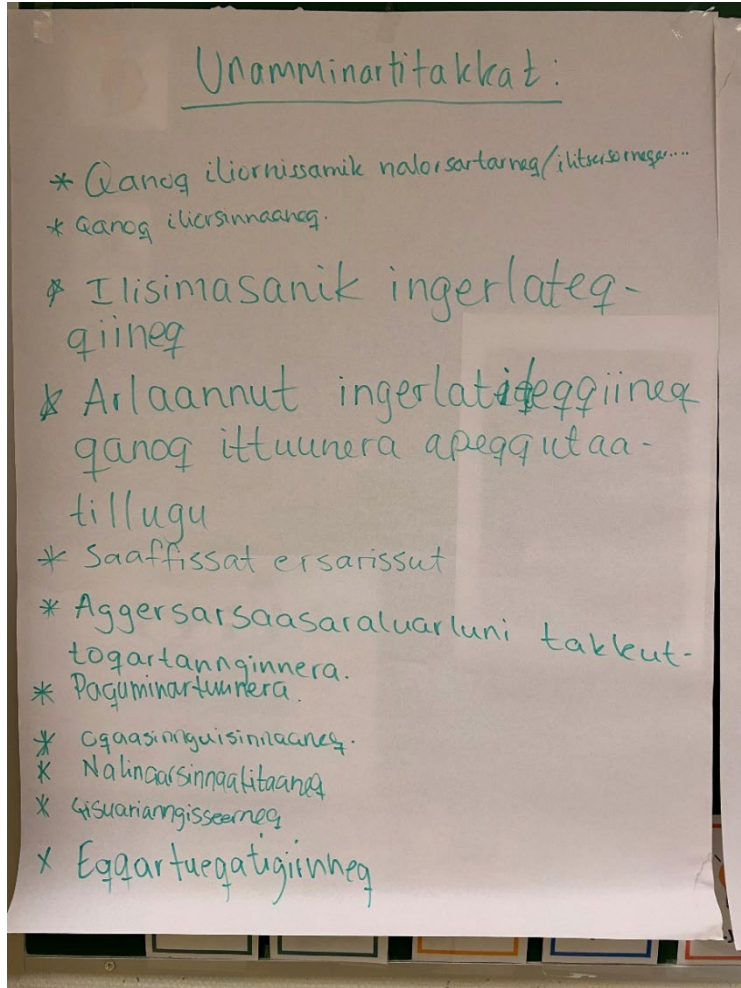 Unamminartitakkat:
* Qanoq iliornissamik nalorsartarneq/ilitsersorneqar....
* Qanoq iliorsinnaaneq.
* Ilisimasanik ingerlateq-
qiineq
* Arlaannut ingerlateqqiineq
qanoq ittuunera apeqqutaa-
tillugu
* Saaffissat ersarissut
* Aggersarsaasaraluarluni takkut-
toqartannginnera.
* Paguminartuunera.
* Oqaasinnguisinnaaneq.
* Nalinaarsinnaalitaaneq
* Qisuarianngisseerneq
* Eqqartueqatigiinneq